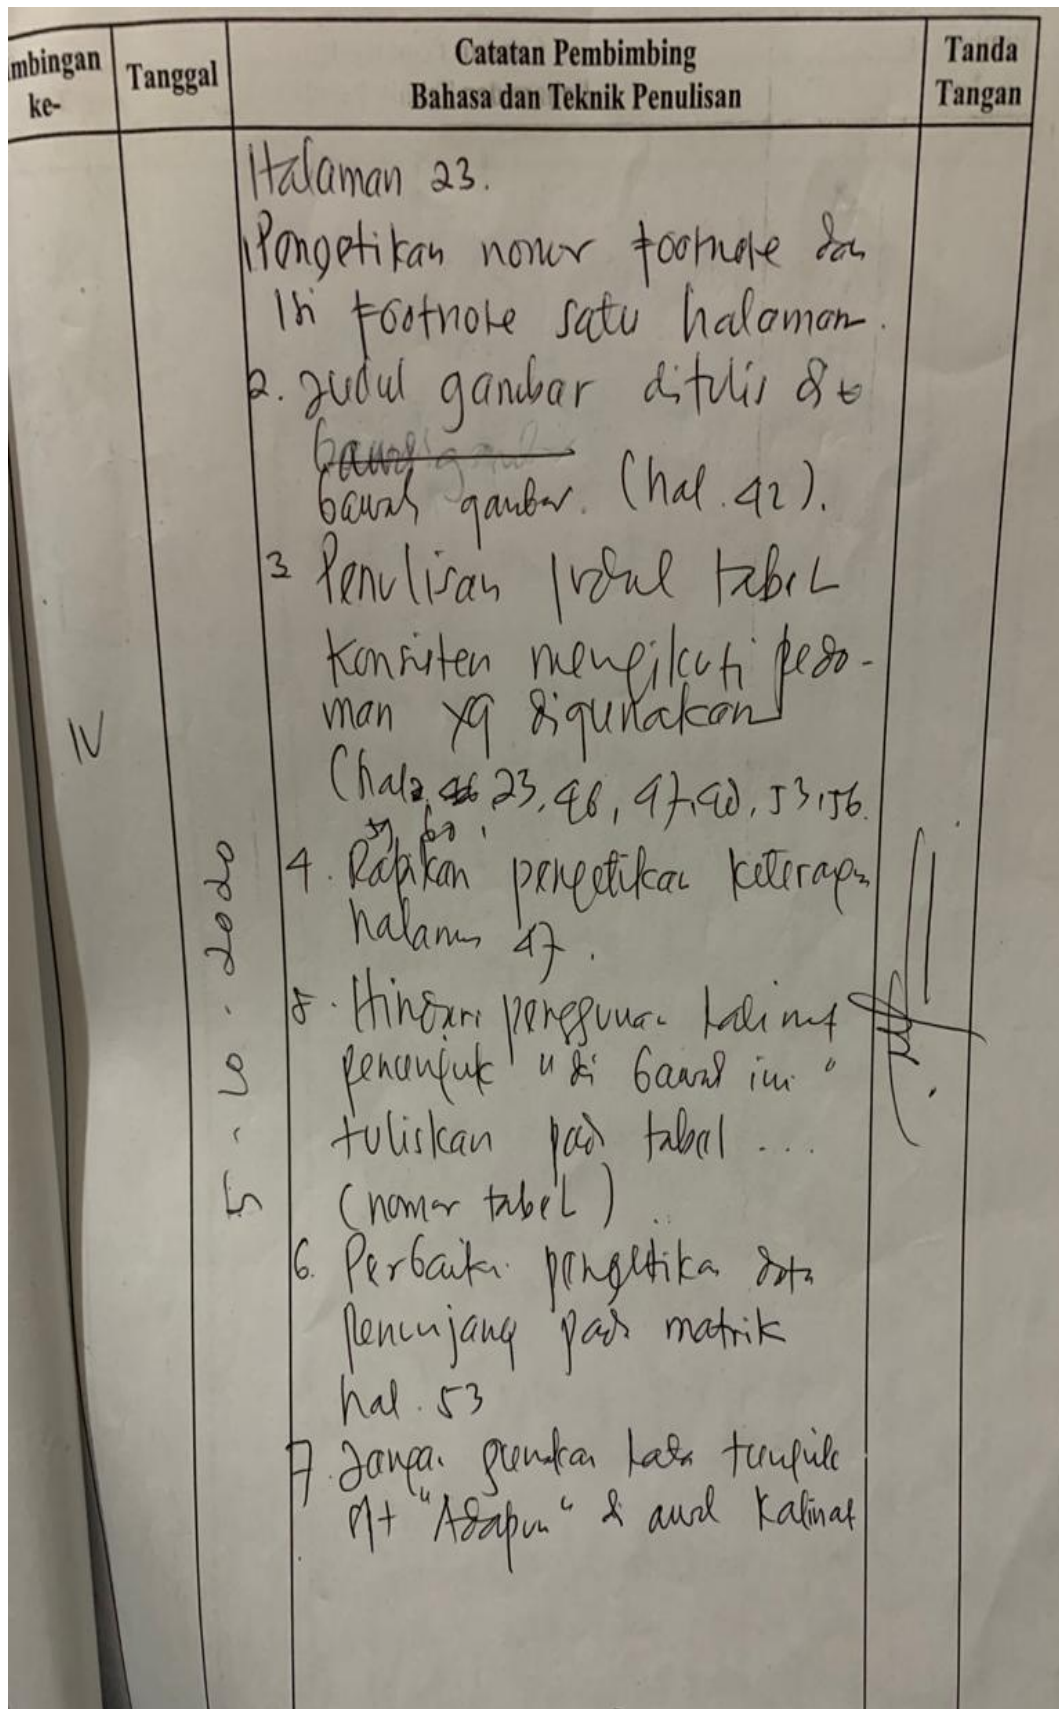 mbingan ke-
Tanggal
Catatan Pembimbing
Bahasa dan Teknik Penulisan
Tanda Tangan
IV
5-10-2020
Halaman 23.
1. Pengetikan nomor footnote dan
Isi footnote satu halaman.
2. Judul gambar ditulis di
bawah gambar. (hal. 42).
3 Penulisan judul tabel
Konsisten mengikuti pedo-
man yg digunakan
(hal 23, 46, 47, 53, 56.
59, 60,
4. Rapikan pengetikan keterangan
halaman 47.
5. Hindari penggunaan kalimat
penunjuk "di bawah ini"
tuliskan pada tabel ...
(nomor tabel)
6. Perbaikan pengetikan data
penunjang pada matrik
hal. 53
7. Jangan gunakan kata tunjuk
"Adapun" di awal kalimat